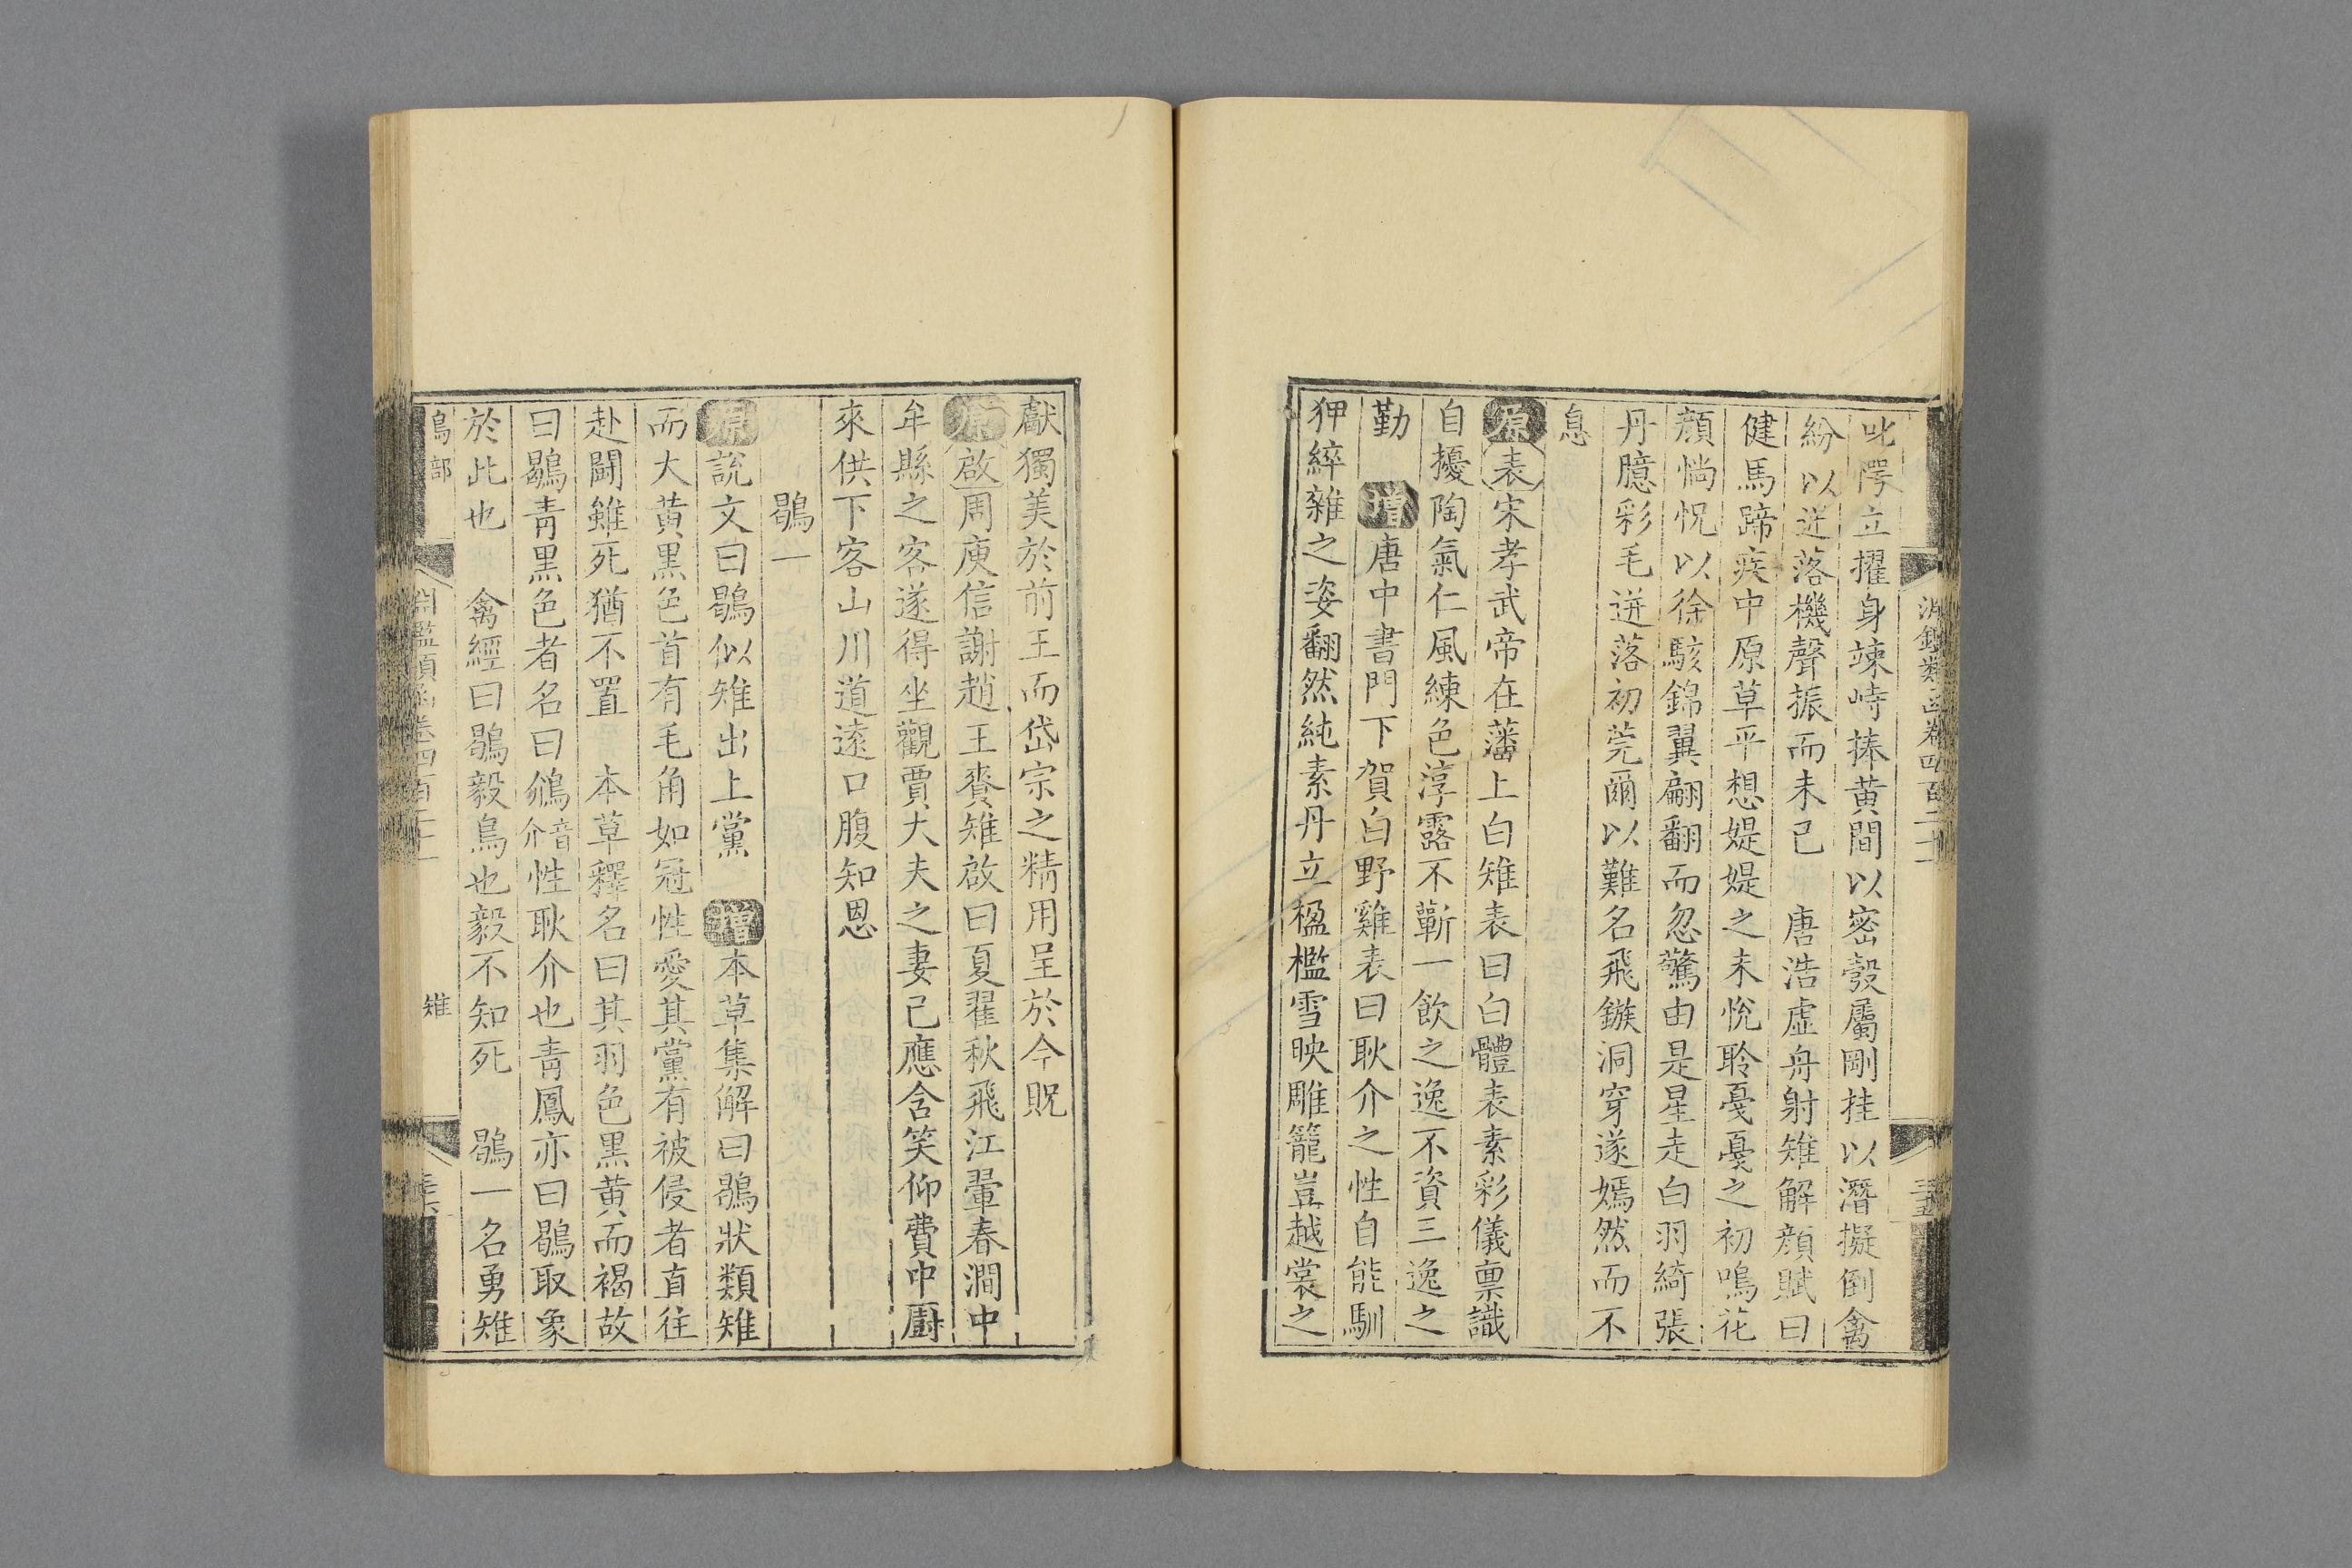 淵鑑類函卷四百二十一
三五
叱愕立擢身竦峙捧黃間以密彀屬剛挂以潛擬倒禽
紛以迸落機聲振而未已　唐浩虛舟射雉解顏賦曰
健馬蹄疾中原草平想媞媞之未悅聆戞戞之初鳴花
顏惝怳以徐駭錦翼翩翻而忽驚由是星走白羽綺張
丹臆彩毛迸落初莞爾以難名飛鏃洞穿遂嫣然而不
息
原表宋孝武帝在藩上白雉表曰白體表素彩儀禀識
自擾陶氣仁風練色淳露不蘄一飲之逸不資三逸之
勤　增唐中書門下賀白野雞表曰耿介之性自能馴
狎綷雜之姿翻然純素丹立楹檻雪映雕籠豈越裳之
獻獨美於前王而岱宗之精用呈於今貺
原啟周庾信謝趙王賚雉啟曰夏翟秋飛江翬春澗中
牟縣之客遂得坐觀賈大夫之妻已應含笑仰費中廚
來供下客山川道遠口腹知恩
鶡一
原說文曰鶡似雉出上黨　增本草集解曰鶡狀類雉
而大黃黑色首有毛角如冠性愛其黨有被侵者直往
赴鬪雖死猶不置　本草釋名曰其羽色黑黃而褐故
曰鶡青黑色者名曰鳻音介性耿介也青鳳亦曰鶡取象
於此也　禽經曰鶡毅鳥也毅不知死　鶡一名勇雉
鳥部
淵鑑類函卷四百二十一
雉
三六